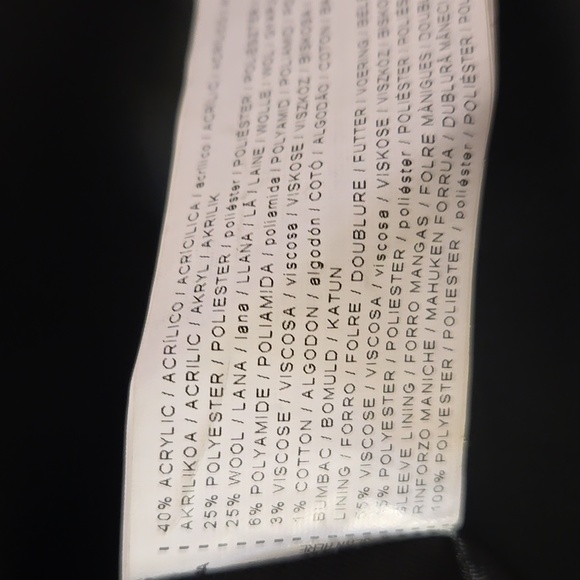 40% ACRYLIC / ACRÍLICO / ACRÍCILICA / acrílico / ACRÍLIC
AKRILIKOA / ACRILIC / AKRYL / AKRILIK
25% POLYESTER / POLIESTER / poliéster / POLIÉSTER / POLIESZTER
25% WOOL / LANA / lana / LLANA / LÃ / LAINE / WOLLE / WOL
6% POLYAMIDE / POLIAMIDA / poliamida / POLYAMID / POLIAMID
3% VISCOSE / VISCOSA / viscosa / VISKOSE / VISZKÓZ
1% COTTON / ALGODON / algodón / COTÓ / ALGODÃO / COTON
BUMBAC / BOMULD / KATUN
LINING / FORRO / FOLRE / DOUBLURE / FUTTER / VOERING
55% VISCOSE / VISCOSA / viscosa / VISKOSE / VISZKÓZ
POLYESTER / POLIESTER / poliéster / POLIÉSTER
SLEEVE LINING / FORRO MANGAS / FOLRE MÀNIGUES
RINFORZO MANICHE / MAHUKEN FORRUA / DUBLURĂ MÂNECI
100% POLYESTER / POLIESTER / poliéster / POLIÉSTER
HERE